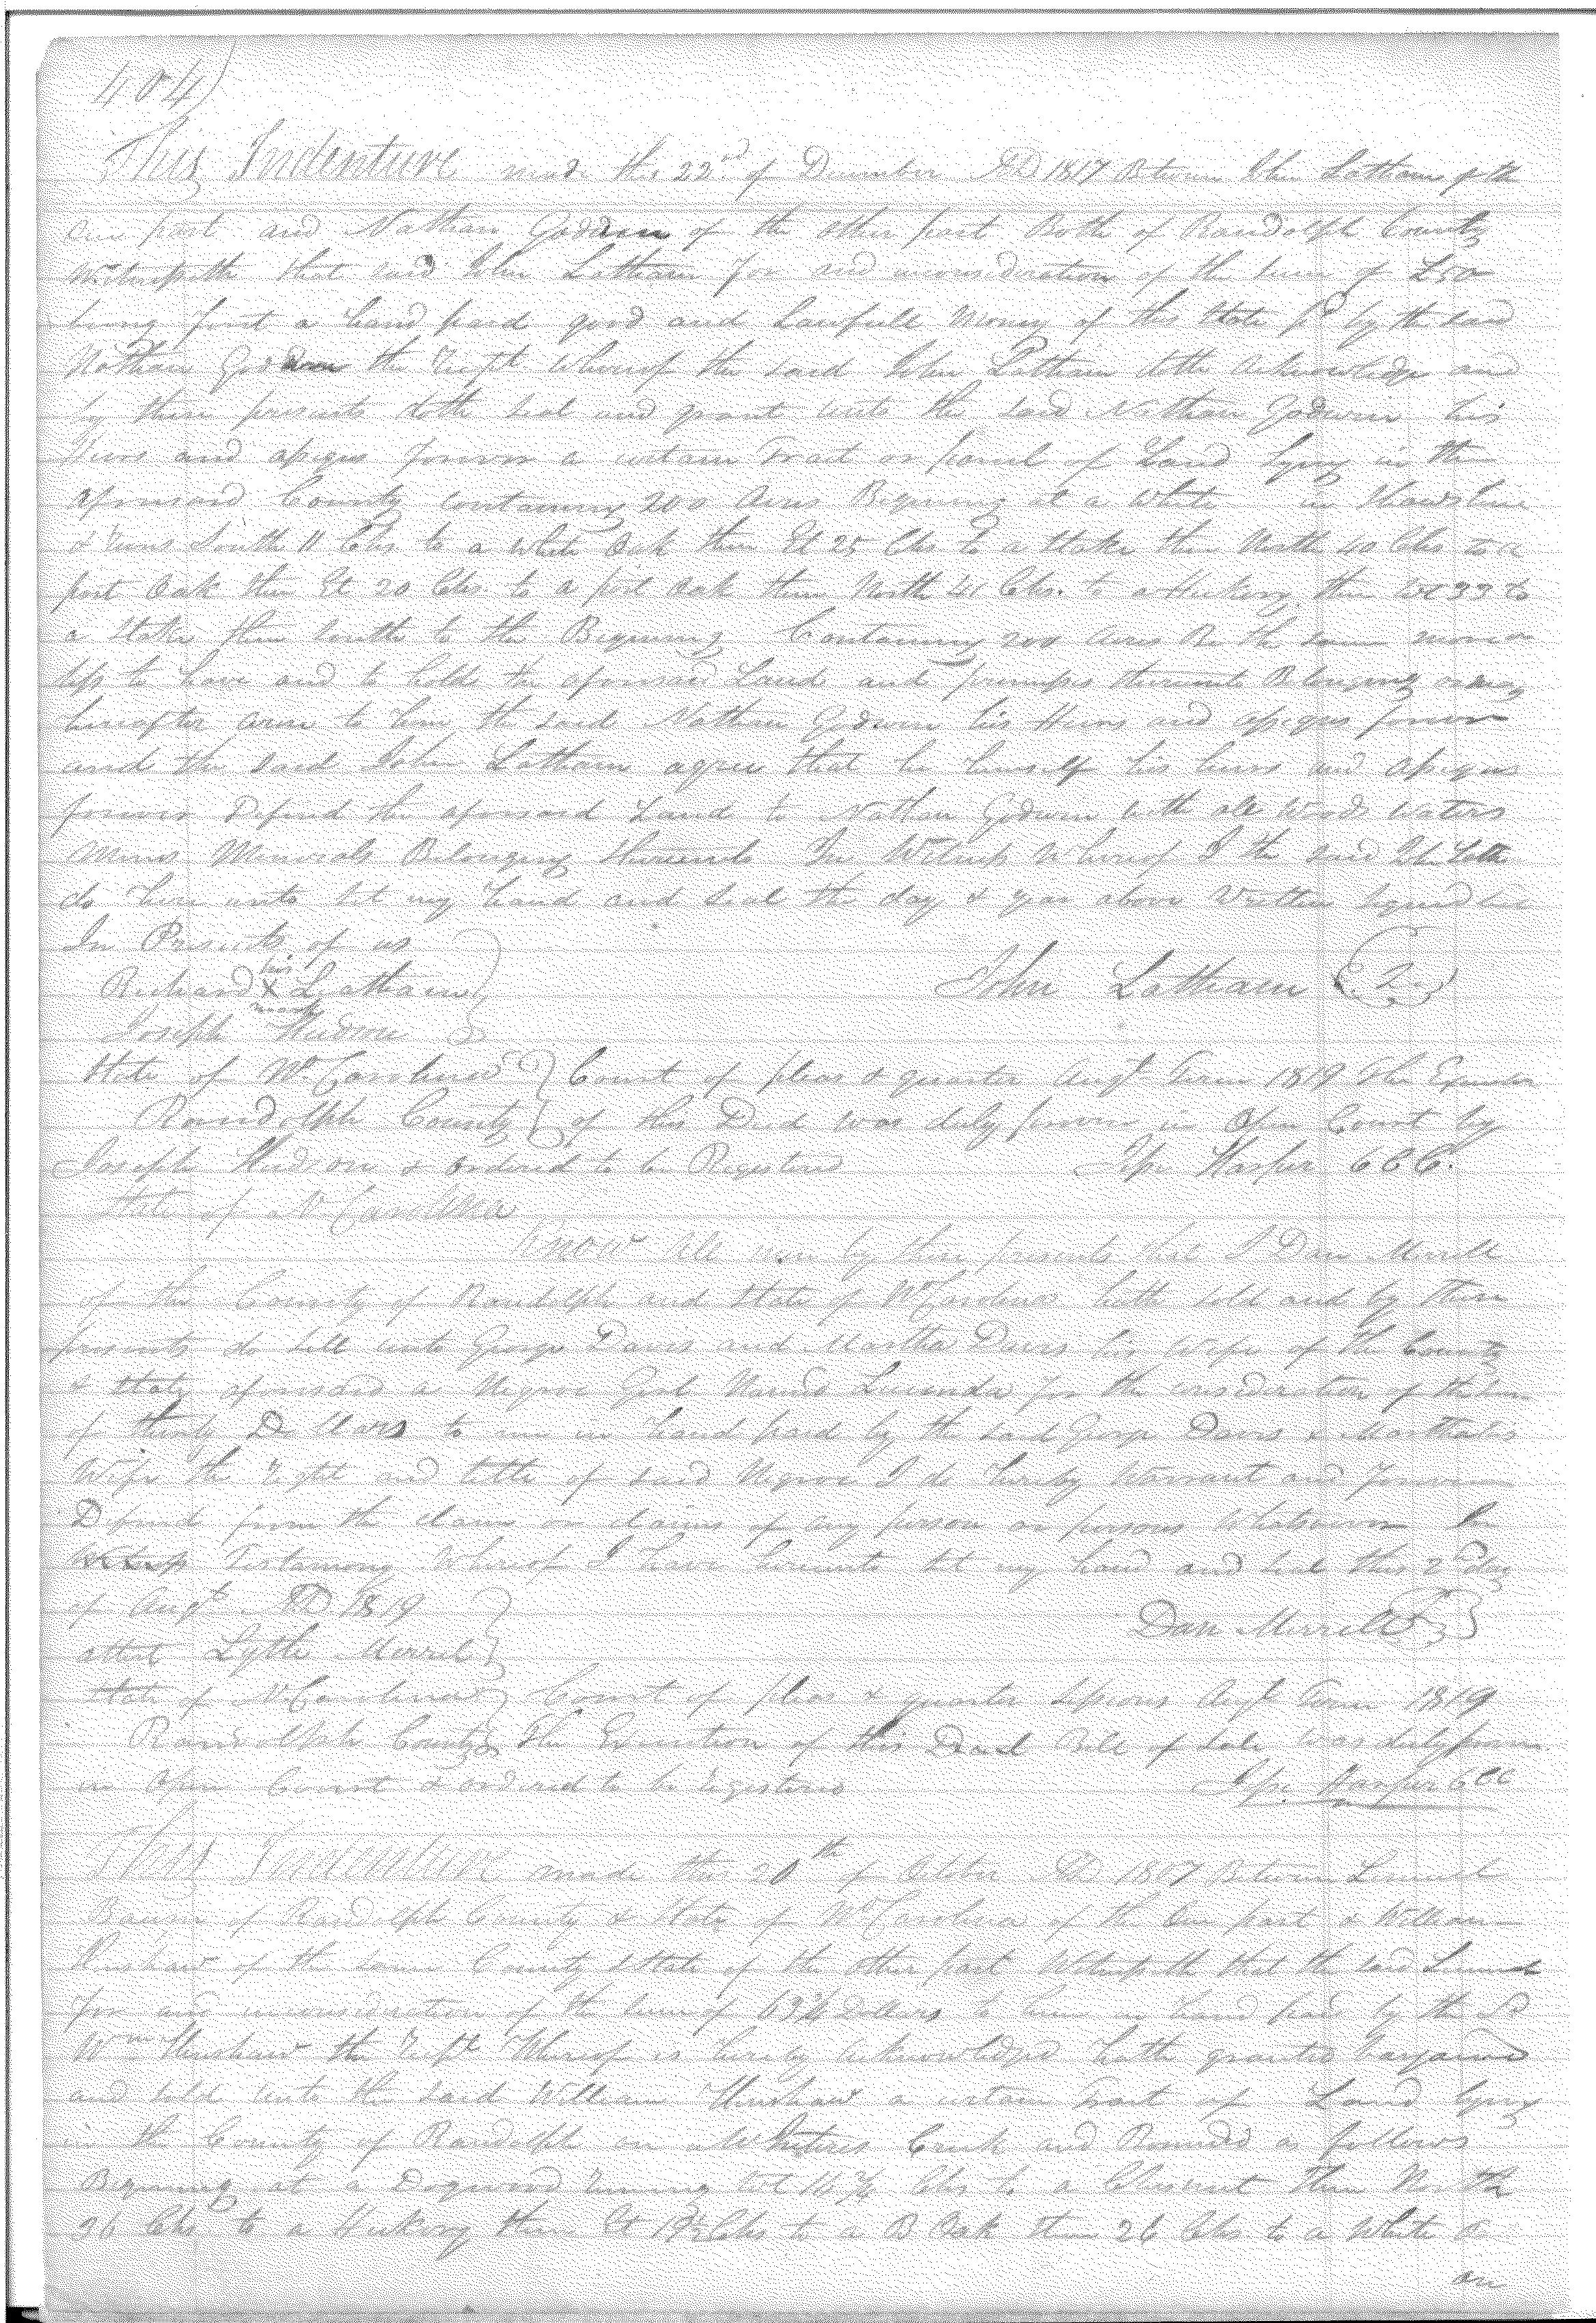 404)
This Indenture made the 22nd of December AD 1817 Between John Latham of the
one part and Nathan Godwin of the other part Both of Randolph County
Witnesseth that said John Latham for and inconsideration of the sum of £50
being first a hand paid good and Lawfull Money of this State pd by the said
Nathan Godwin the Recpt Whereof the said John Latham doth acknowledge and
by these presents doth seal and grant unto the said Nathan Godwin his
Heirs and assigns forever a certain Tract or parcel of Land Lying in the
aforesaid County containing 200 acres Begining at a White in line
& runs South 11 Chs. to a white Oak then Et 25 Chs to a stake then North 40 Chs to a
post Oak then Et 20 Chs. to a post Oak then North 41 Chs. to a Hickory then Wt 33 to
a stake then South to the Begining Containing 200 acres Be the same more or
less to have and to holde the aforesaid Lands and premises thereunto Belonging
hereafter to him the said Nathan Godwin his Heirs and assigns forever
and the said John Latham agree that he himself his heirs and assigns
forever Defend the aforesaid Land to Nathan Godwin with all Woods Waters
Mines Minerals Belonging thereunto In Witness Whereof I the said John
do here unto set my hand and seal the day & year above Written
In Presents of us
his
Richard X Latham John Latham
mark
Joseph Hudson
State of No Carolina Court of pleas & quarter Augt Term 1819 The
Randolph County of this Deed was duly proven in Open Court by
Joseph Hudson & ordered to be Registered Jesse Harper CCC.
State of N Carolina
Know All men by these presents that I Dan Merrell
of the County of Randolph and State of No Carolina hath sold and by these
presents do sell unto George Davis and Martha Davis his Wife of the County
& State aforesaid a Negroe Girl Named Lucinda for the consideration of the sum
of thirty Dollars to me in hand paid by the said George Davis & Martha his
Wife the right and title of said Negroe I do hereby Warrant and forever
Defend from the claim or claims of any person or persons Whatsoever In
Testamony Whereof I have hereunto set my hand and seal this 2d day
of Augt AD 1819 Dan Merrell
attest Merrel
State of N Carolina Court of pleas & quarter Sessions Augt Term 1819
Randolph County The Execution of this Deed Bill of Sale was duly proven
in Open Court & ordered to be registered Jesse Harper CCC
This Indenture made this 20th of AD 1807 Between Lemuel
of Randolph County & State of No Carolina of the one part & William
Hinshaw of the same County & State of the other part Witnesseth that the said Lemuel
for and inconsideration of the sum of Dollars to him in hand paid by the Sd
Wm Hinshaw the recpt Whereof is hereby acknowledged hath granted Bargained
and sold unto the said William Hinshaw a certain Tract of Land Lying
in the County of Randolph on Creek and Bounded as follows
Begining at a Dogwood runing Wt Chs to a Chesnut then North
36 Chs to a Hickory then Et Chs to a B Oak then 26 Chs to a White O
on